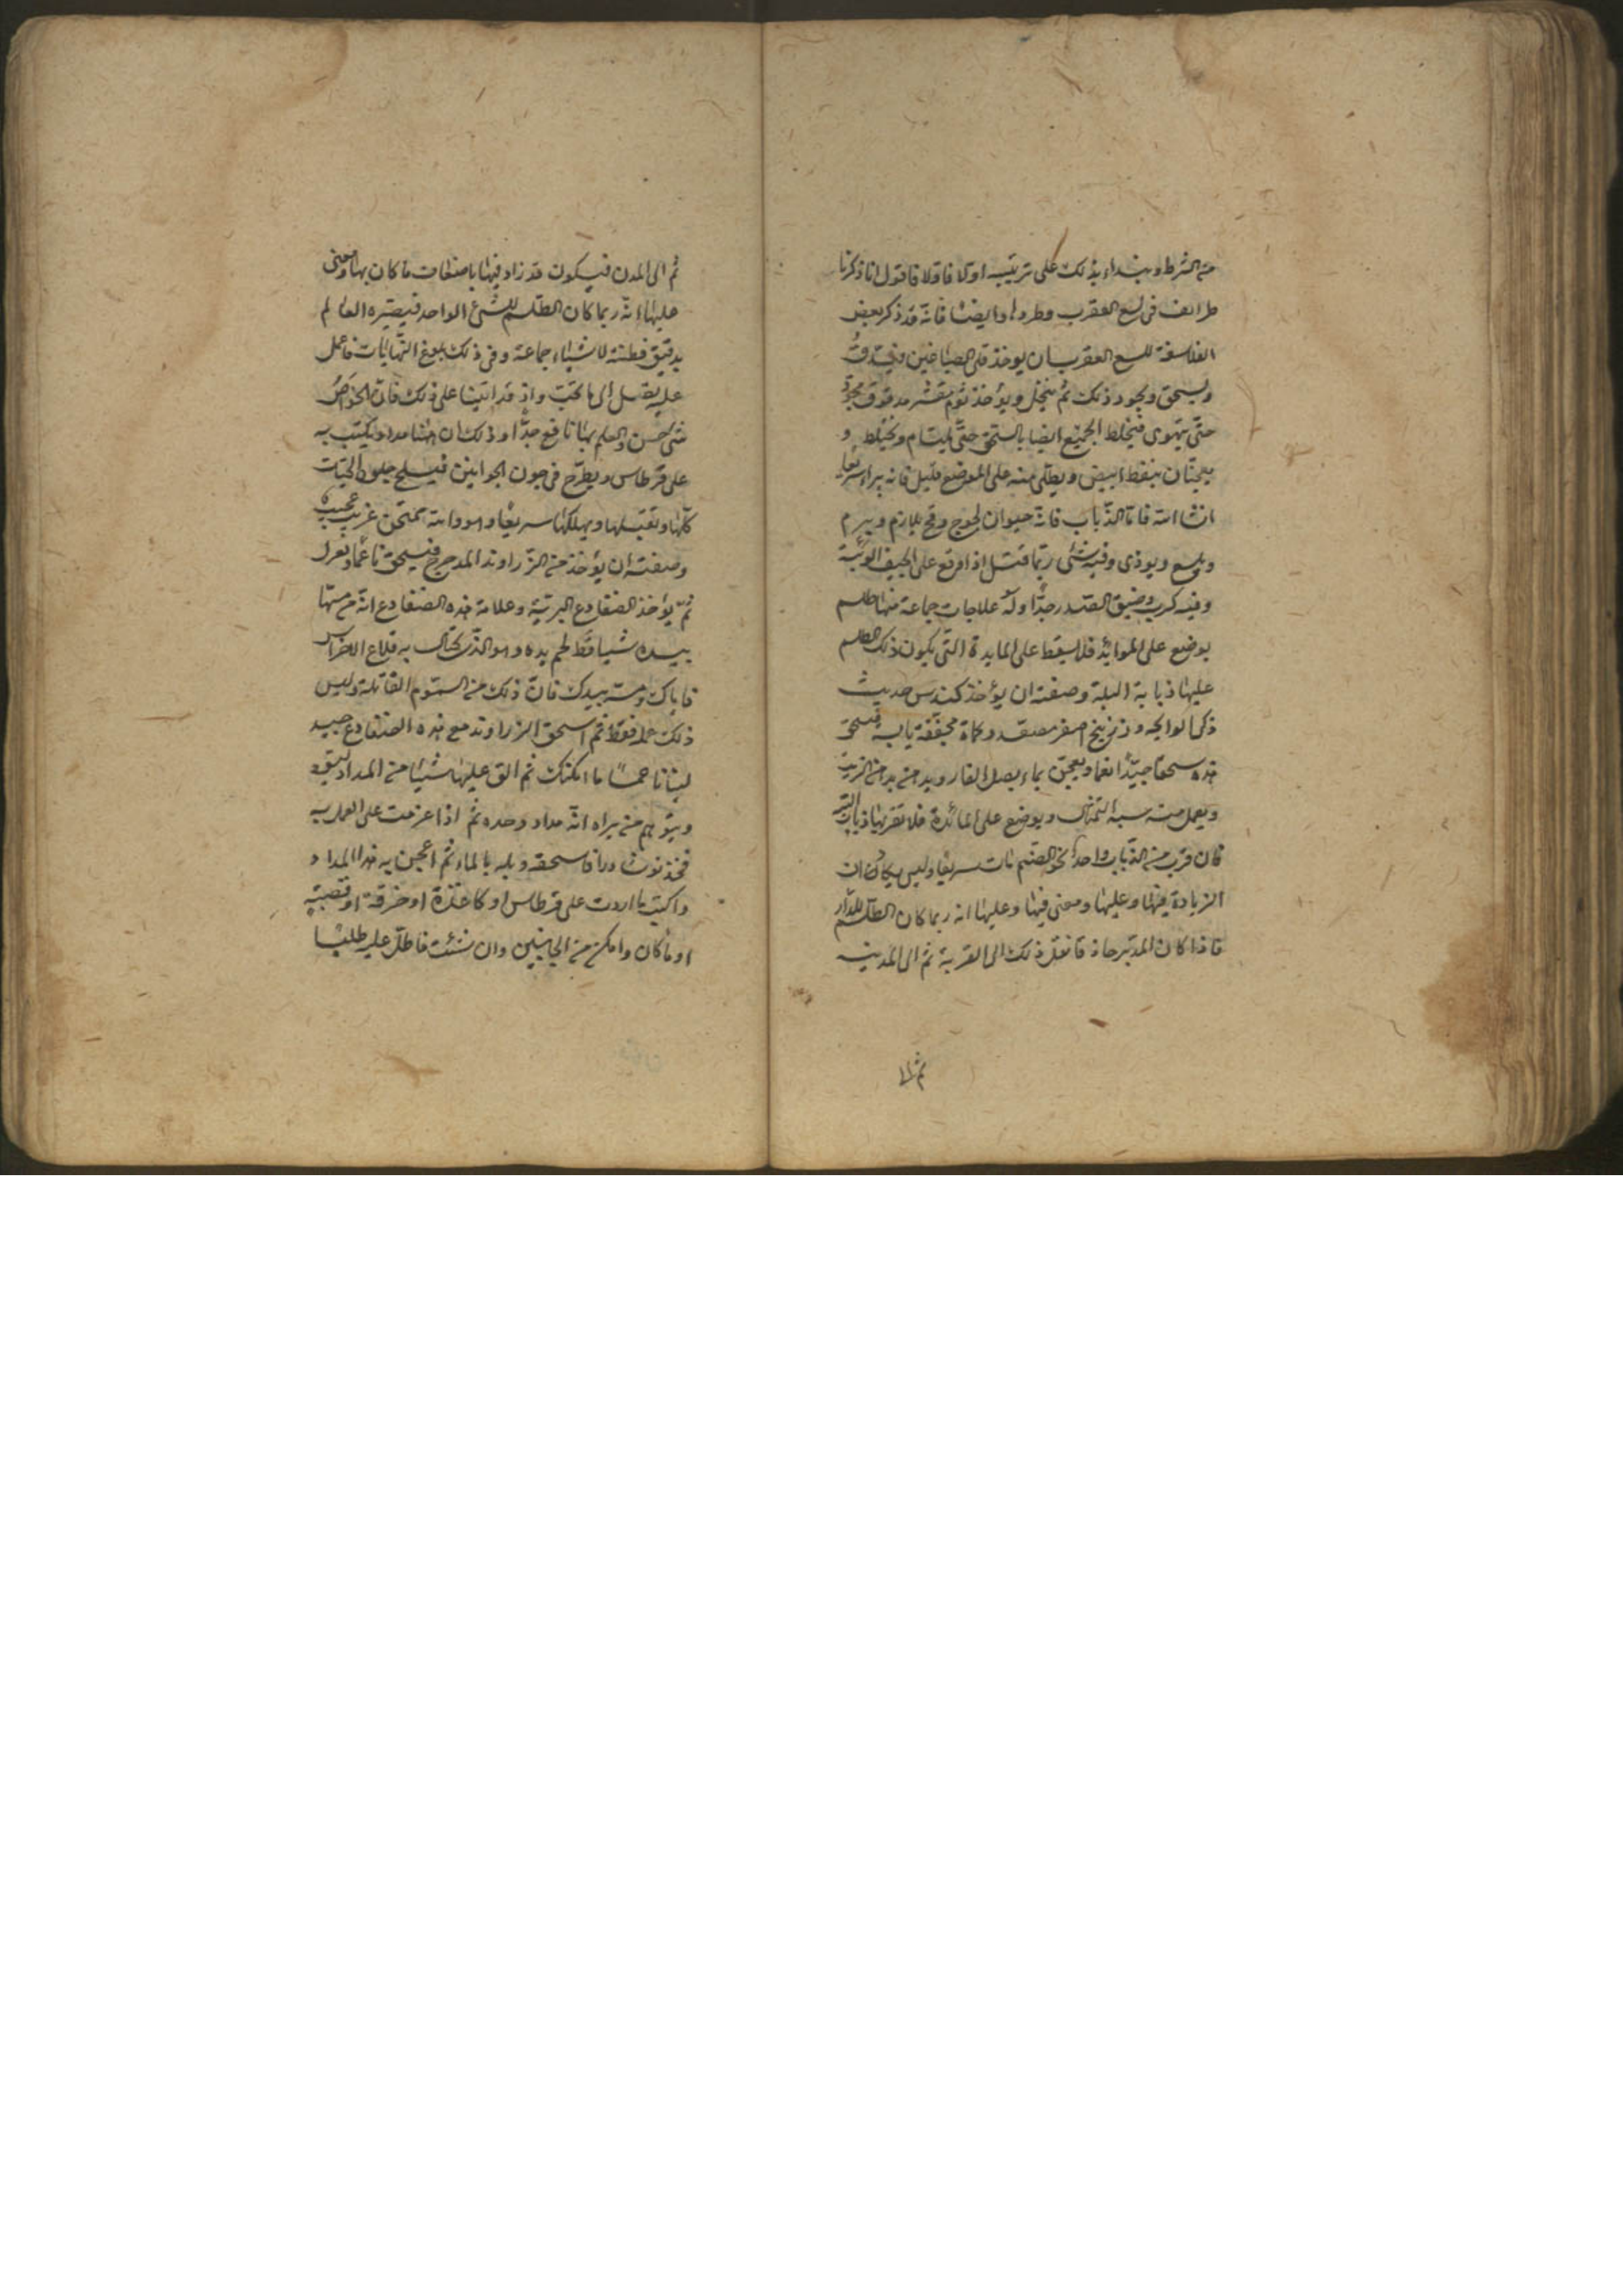 من الشرط ونبداء بذلك على ترتيبه اولا فاولا فاقول انا ذكرنا
طرائف فى لسع العقرب وطردها وايضا فانه قد ذكر بعض
الفلاسفة للسع العقرب ان يوخذ قلى الصباغين فيدق
ويسحق ويجود ذلك ثم ينخل ويؤخذ ثوم مقشر مدقوق مجود
حتى يتهوى فيخلط الجميع ايضا بالسحق حتى يلتام ويختلط و
يعجنان بنفط ابيض ويطلى منه على الموضع قليل فانه يبراء سريعا
انشا الله فاما الذباب فانه حيوان لجوج وقح يلازم ويبرم
ويلسع ويوذى وفيه شئ ربما قتل اذا وقع على الجيف الوبئة
وفيه كرب وضيق الصدر جدا وله علاجات جماعة منها طلسم
يوضع على الموائد فلا يسقط على المايدة التى يكون ذلك الطلسم
عليها ذبابة البتة وصفته ان يؤخذ كندس حديث
ذكى الرايحه وزرنيخ اصفر مصعد وكماة مجففة يابسه فيسحق
هذه سحقا جيدا نعما ويعجن بماء بصل الفار ويدهن يده من الزيت
ويعمل منه سبه التمثال ويوضع على المائدة فلا تقربها ذباب البتة
فان قرب من الذباب واحد نحو الصنم مات سريعا وليس يكاد ان
الزيادة فيها وعليها ومعنى فيها وعليها انه ربما كان الطلسم للدار
فاذا كان المدبر حاذقا نقل ذلك الى القرية ثم الى المدينه
ثم الى
ثم الى المدن فيكون قد زاد فيها باضعاف ما كان بها ومعنى
عليها انه ربما كان الطلسم للشئ الواحد فيصيره العالم
بدقيق فطنته لاشياء جماعة وفى ذلك بلوغ النهايات فاعمل
عليه تصل الى ما تحب واذ قد اتينا على ذلك فان الخواص
شئ حسن والعلم بها نافع جدا وذلك ان هاهنا مداد يكتب به
على قرطاس ويطرح فى جون الجوانين فيسلخ جلود الحيات
كلها ويقتلها ويهلكها سريعا وهو والله ممتحن غريب عجيب
وصفته ان يؤخذ من الزراوند المدحرج فيسحق ناعما ويعزل
ثم يؤخذ الضفادع البرية وعلامة هذه الضفادع انه من مسها
بيده تساقط لحم يده وهو الذى يحتال به قلاع الاضراس
فاياك ومسه بيدك فان ذلك من السموم القاتلة وليس
ذلك عمله فقط ثم اسحق الزراوند مع هذه الضفادع جيد
لبثانا خمسا ما امكنك ثم الق عليها شيئا من المداد ليسود
ويتوهم من يراه انه مداد وحده ثم اذا عزمت على العمل به
فخذ نوشادرا فاسحقه وبله بالماء ثم اعجن به هذا المداد
واكتب ما اردت على قرطاس او كاغذة او خرقة او قصبة
او ما كان وامكن من الجانبين وان شئت فاطل عليه طليا